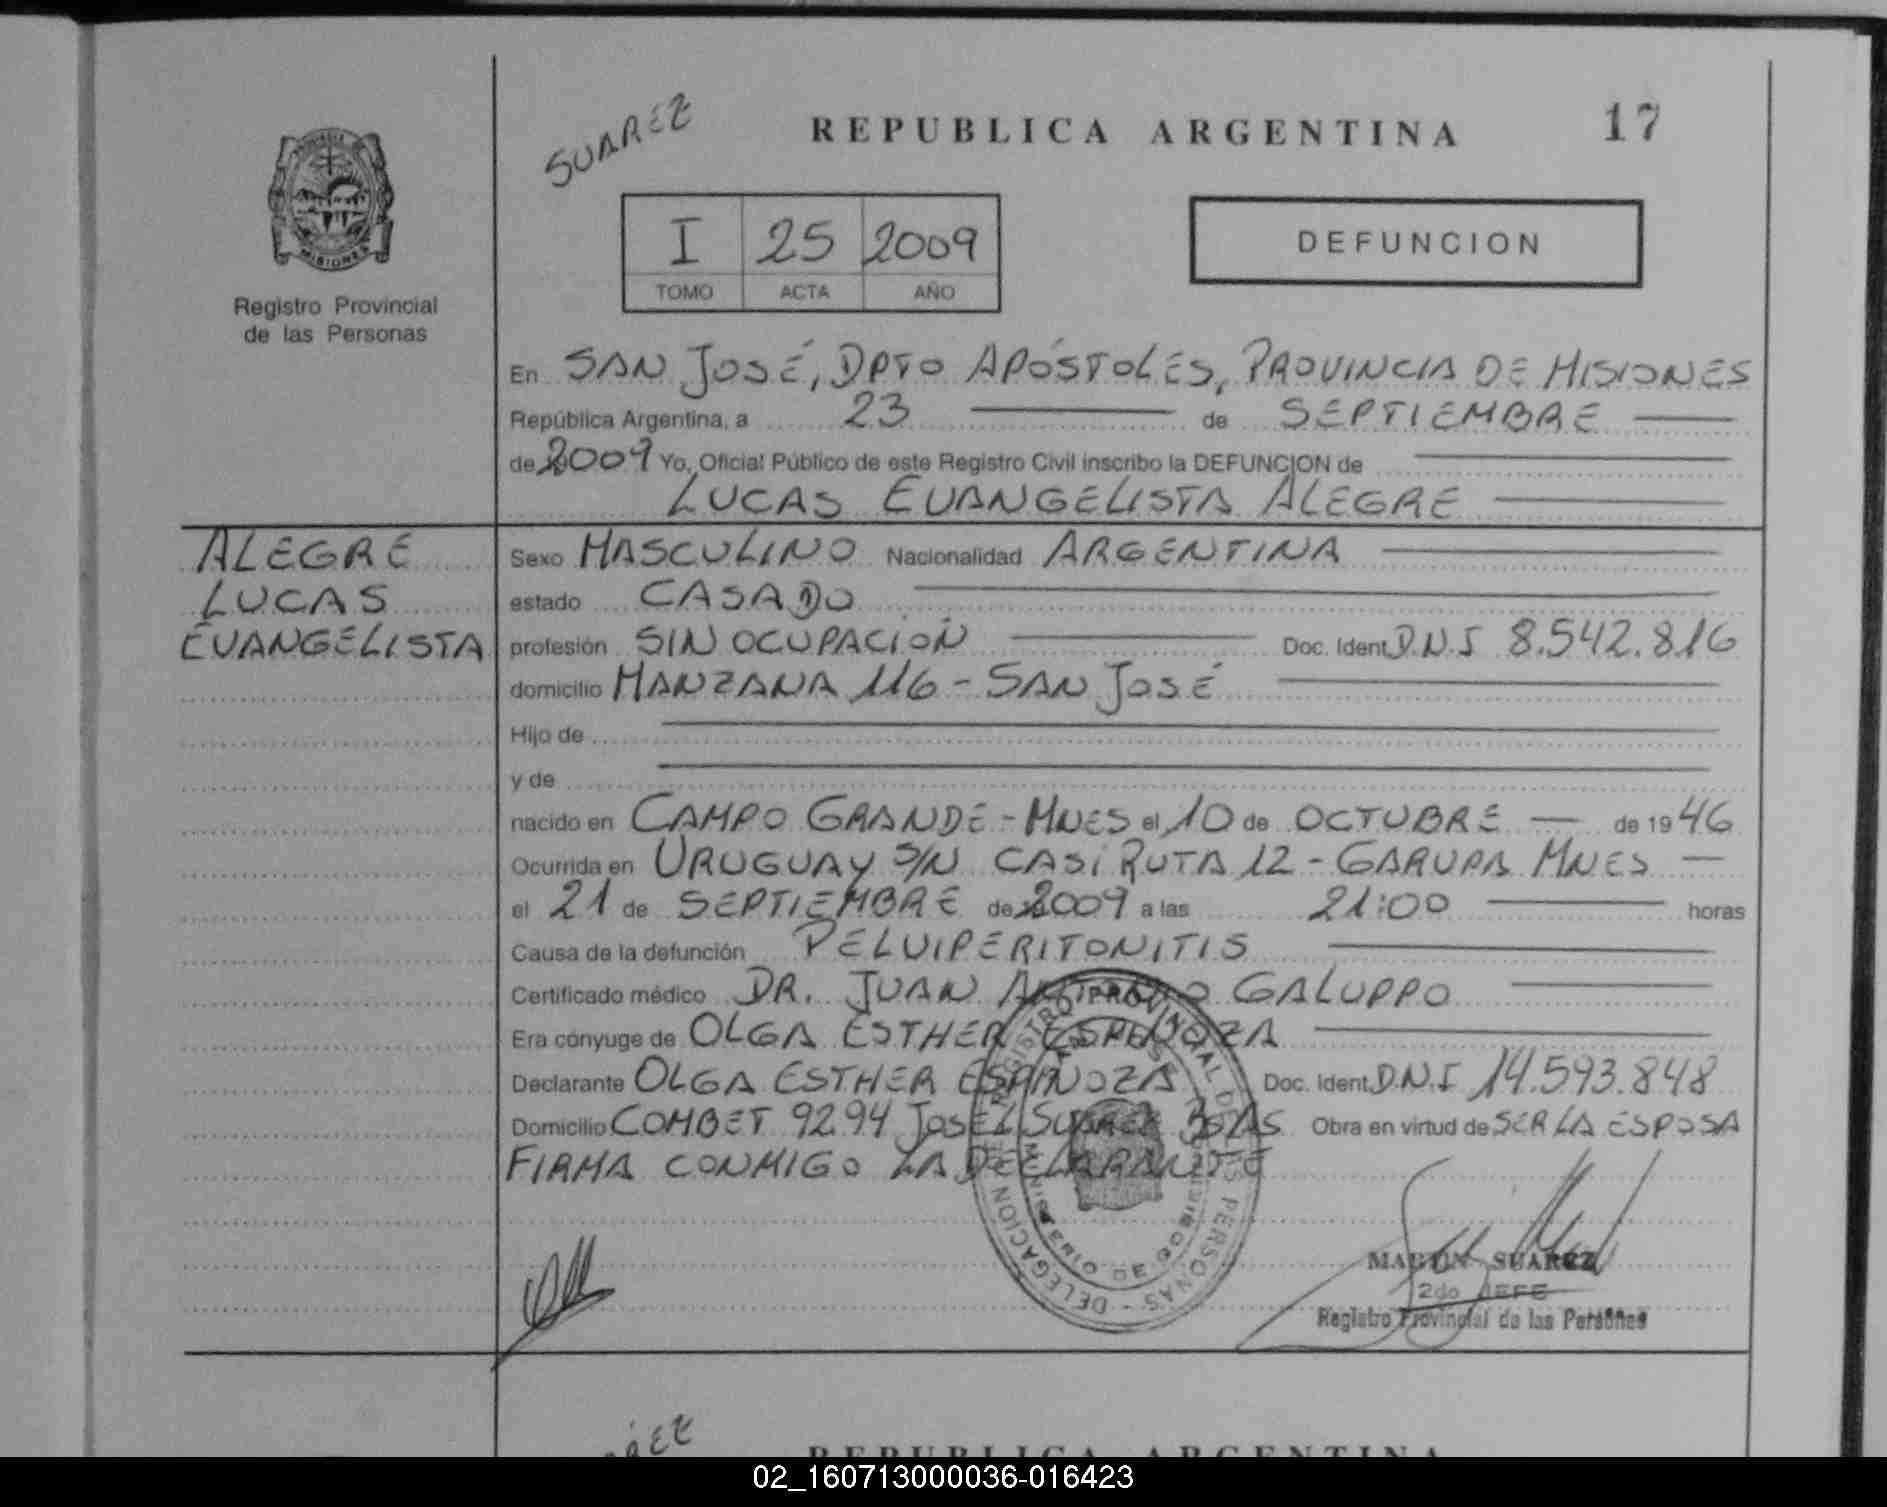 SUAREZ
REPUBLICA ARGENTINA
17
I 25 2009
TOMO ACTA AÑO
DEFUNCION
MISIONES
Registro Provincial
de las Personas
En SAN JOSÉ, DPTO APÓSTOLES, PROVINCIA DE MISIONES
República Argentina, a 23 de SEPTIEMBRE
de 2009 Yo, Oficial Público de este Registro Civil inscribo la DEFUNCION de
LUCAS EVANGELISTA ALEGRE
ALEGRE
LUCAS
EVANGELISTA
Sexo MASCULINO Nacionalidad ARGENTINA
estado CASADO
profesión SIN OCUPACIÓN Doc. Ident. D.N.I 8.542.816
domicilio MANZANA 116 - SAN JOSÉ
Hijo de
y de
nacido en CAMPO GRANDE - MNES el 10 de OCTUBRE de 1946
Ocurrida en URUGUAY S/N CASI RUTA 12 - GARUPA MNES
el 21 de SEPTIEMBRE de 2009 a las 21:00 horas
Causa de la defunción PELVIPERITONITIS
Certificado médico DR. JUAN GALUPPO
Era cónyuge de OLGA ESTHER ESPINOZA
Declarante OLGA ESTHER ESPINOZA Doc. Ident. D.N.I 14.593.848
Domicilio COMBET 9294 JOSE L SUAREZ BS AS Obra en virtud de SER LA ESPOSA
FIRMA CONMIGO LA DECLARANTE
REGISTRO PROVINCIAL DE LAS PERSONAS - DELEGACION
MINISTERIO DE GOBIERNO
SUAREZ
2do JEFE
Registro Provincial de las Personas
REPUBLICA ARGENTINA
02_160713000036-016423